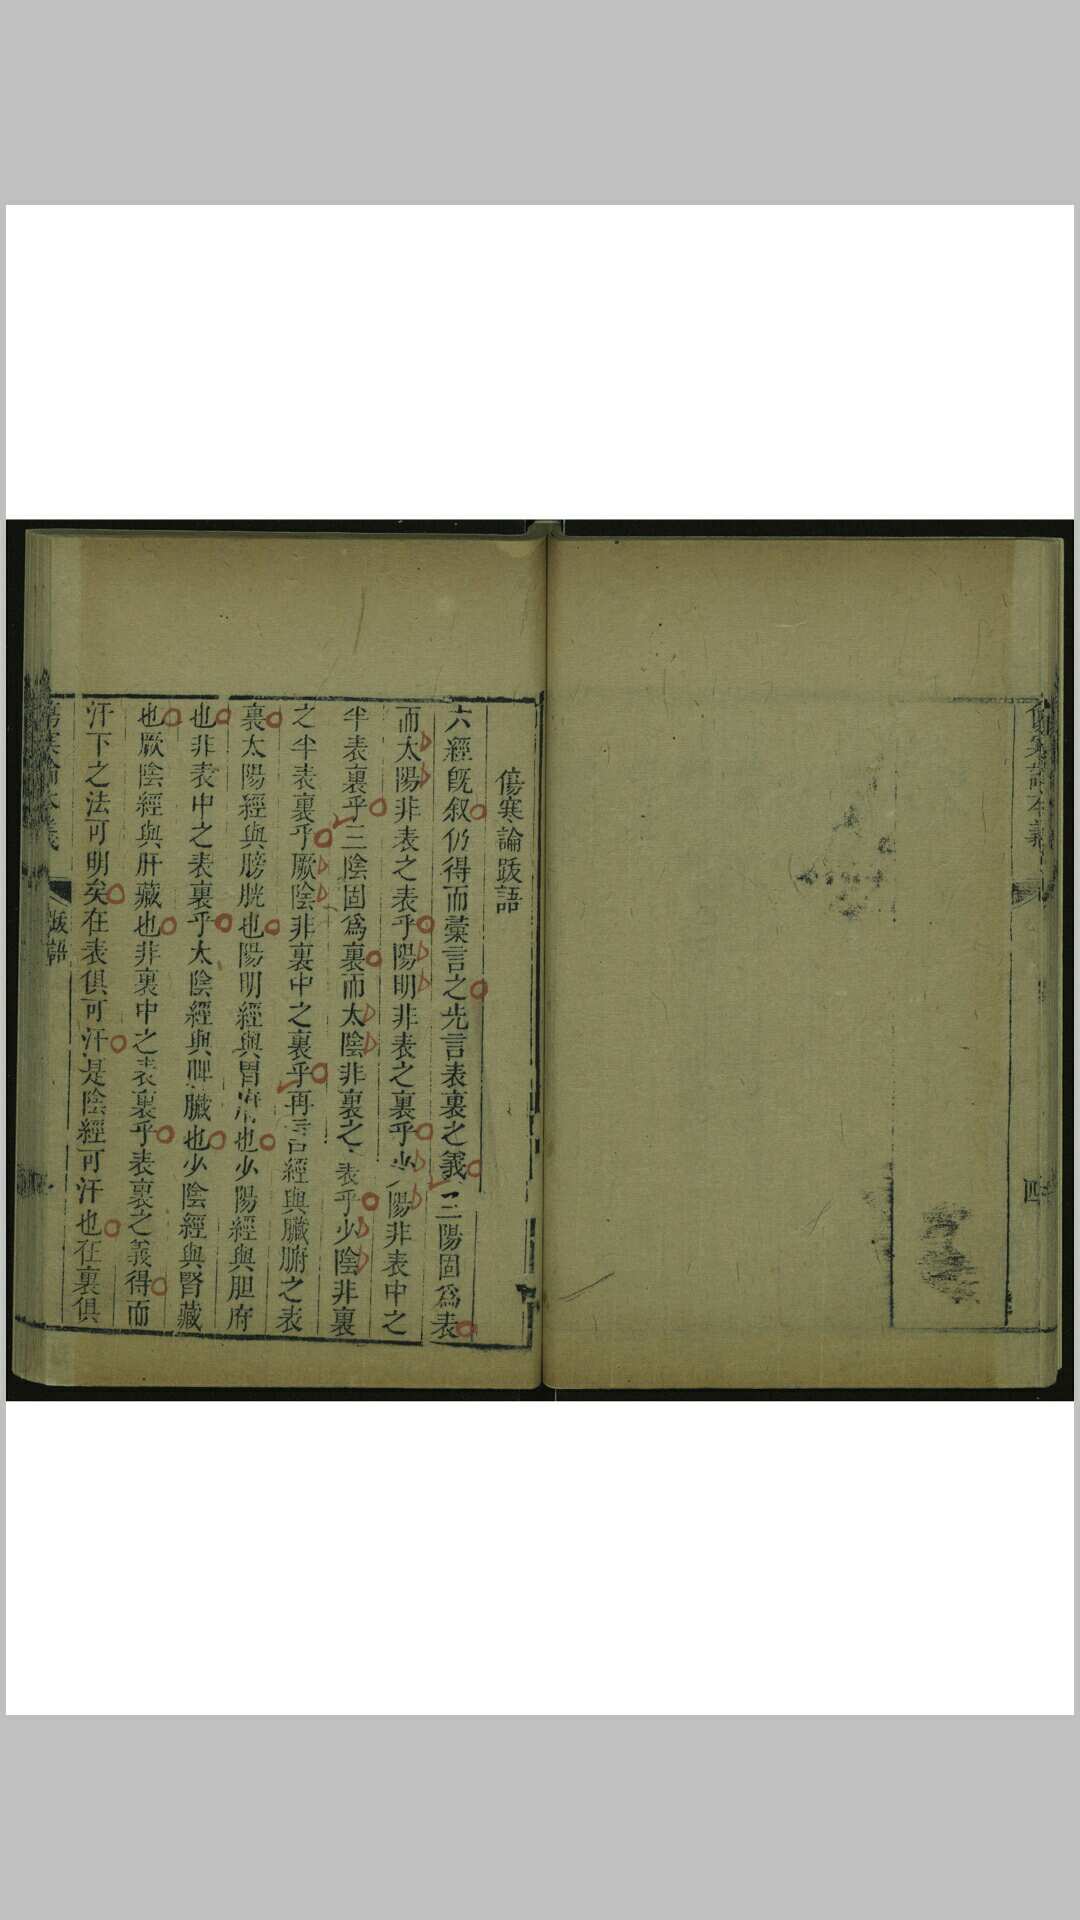 四
傷寒論跋語
六經旣叙仍得而彙言之先言表裏之義三陽固爲表
而太陽非表之表乎陽明非表之裏乎少陽非表中之
半表裏乎三陰固爲裏而太陰非裏之表乎少陰非裏
之半表裏乎厥陰非裏中之裏乎再言經與臟腑之表
裏太陽經與膀胱也陽明經與胃府也少陽經與胆府
也非表中之表裏乎太陰經與脾臟也少陰經與腎藏
也厥陰經與肝藏也非裏中之表裏乎表裏之義得而
汗下之法可明矣在表俱可汗是陰經可汗也在裏俱
傷寒論本義
跋語